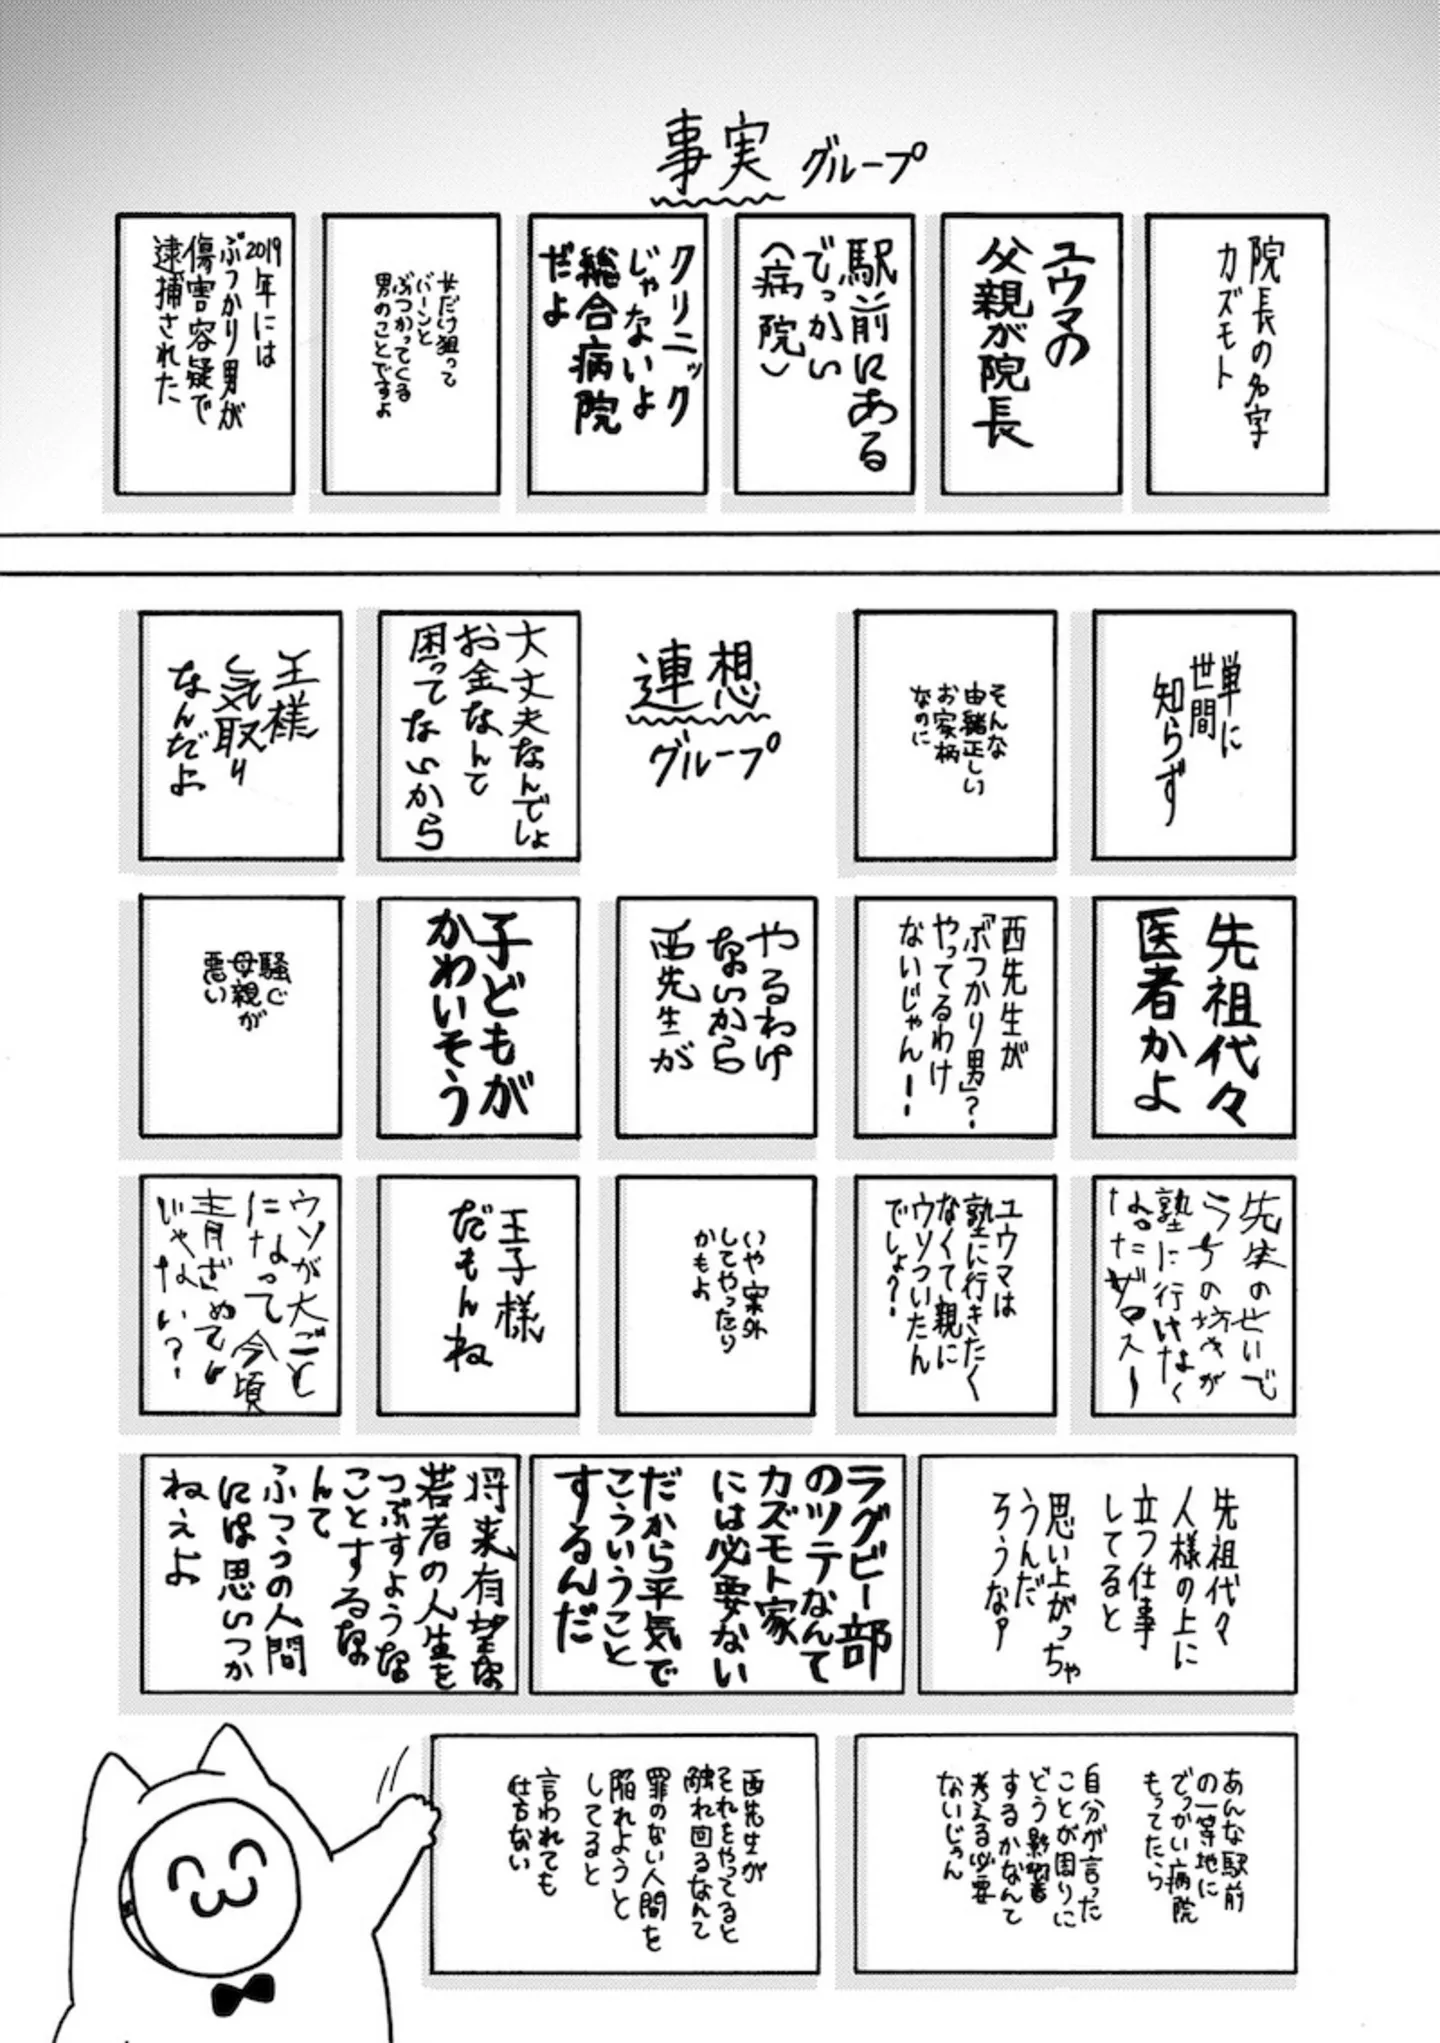 事実グループ
院長の名字
カズモト
ユウマの
父親が院長
駅前にある
でっかい
(病院)
クリニック
じゃないよ
総合病院
だよ
女だけ狙って
バーンと
ぶつかってくる
男のことですよ
2019年には
ぶつかり男が
傷害容疑で
逮捕された
単に
世間
知らず
そんな
由緒正しい
お家柄
なのに
連想
グループ
大丈夫なんでしょ
お金なんて
困ってないから
王様
気取り
なんだよ
先祖代々
医者かよ
西先生が
「ぶつかり男」?
やってるわけ
ないじゃんー
やるわけ
ないから
西先生が
子どもが
かわいそう
騒ぐ
母親が
悪い
先生のせいで
うちの坊やが
塾に行けなく
なったザマスー
ユウマは
塾に行きたく
なくて親に
ウソついたん
でしょ?
いや案外
してやったり
かもよ
王子様
だもんね
ウソが大ごと
になって今頃
青ざめてん
じゃない?
先祖代々
人様の上に
立つ仕事
してると
思い上がっちゃ
うんだ
ろうな?
ラグビー部
のツテなんて
カズモト家
には必要ない
だから平気で
こういうこと
するんだ
将来有望な
若者の人生を
つぶすような
ことするな
んて
ふつうの人間
には思いつか
ねえよ
あんな駅前
の一等地に
でっかい病院
もってたら
自分が言った
ことが周りに
どう影響
するかなんて
考える必要
ないじゃん
西先生が
それをやってると
触れ回るなんて
罪のない人間を
陥れようと
してると
言われても
仕方ない